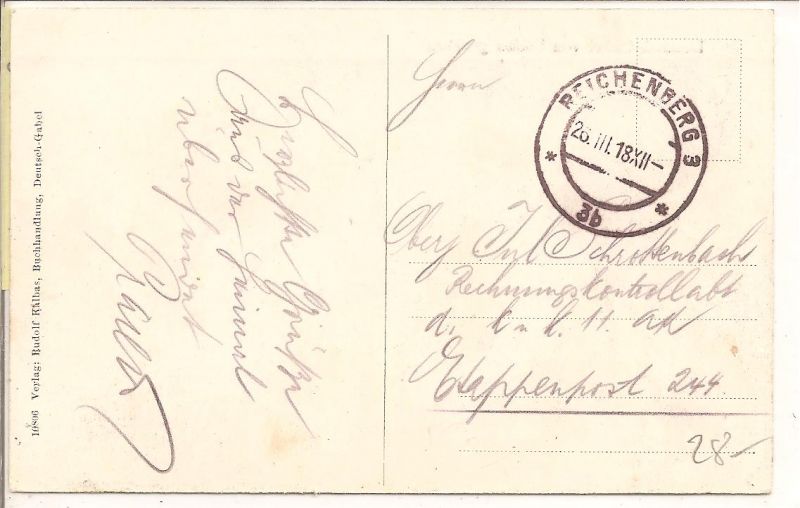 10806 Verlag: Rudolf Kalbas, Buchhandlung, Deutsch-Gabel
Herzlichste Grüße
aus der Heimat
übersendet
Herrn
REICHENBERG 3
26.III.18XII-
* 3b *
Schrottenbach
Rechnungskontrollabt
d. k. u. k. 11. AK
Etappenpost 244
28-